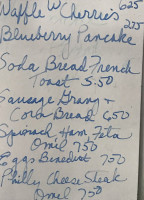 Waffle W Cherries 625
Blueberry Pancake 225
Soda Bread French
Toast 5.50
Sausage Gravy +
Corn Bread 650
Spinach, Ham, Feta
Omil 750
Eggs Benedict 750
Philly Cheese Steak
Omil 750